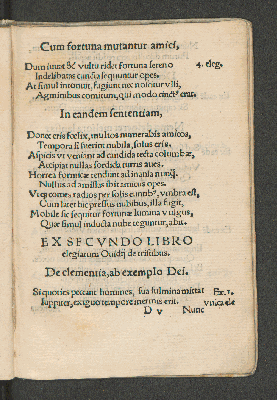 Cum fortuna mutantur amici,
Dum iuuat & vultu ridet fortuna sereno 4. eleg.
Indelibatas cuncta sequuntur opes.
At simul intonuit, fugiunt nec noscitur vlli,
Agminibus comitum, qui modo cinctꝰ erat.
In eandem sententiam,
Donec eris fœlix, multos numerabis amicos,
Tempora si fuerint nubila, solus eris.
Aspicis vt veniant ad candida tecta columbæ,
Accipiat nullas sordida turris aues.
Horrea formicæ tendunt ad inania nunq̃,
Nullus ad amissas ibit amicus opes.
Vtq; comes radios per solis euntibꝰ vmbra est,
Cum latet hic pressus nubibus, illa fugit,
Mobile sic sequitur fortunæ lumina vulgus,
Quæ simul inducta nube teguntur, abit.
EX SECVNDO LIBRO
elegiarum Ouidij de tristibus.
De clementia, ab exemplo Dei.
Si quoties peccant homines, sua fulmina mittat Ex. 1.
Iuppiter, exiguo tempore inermis erit. vnica ele
D v Nunc